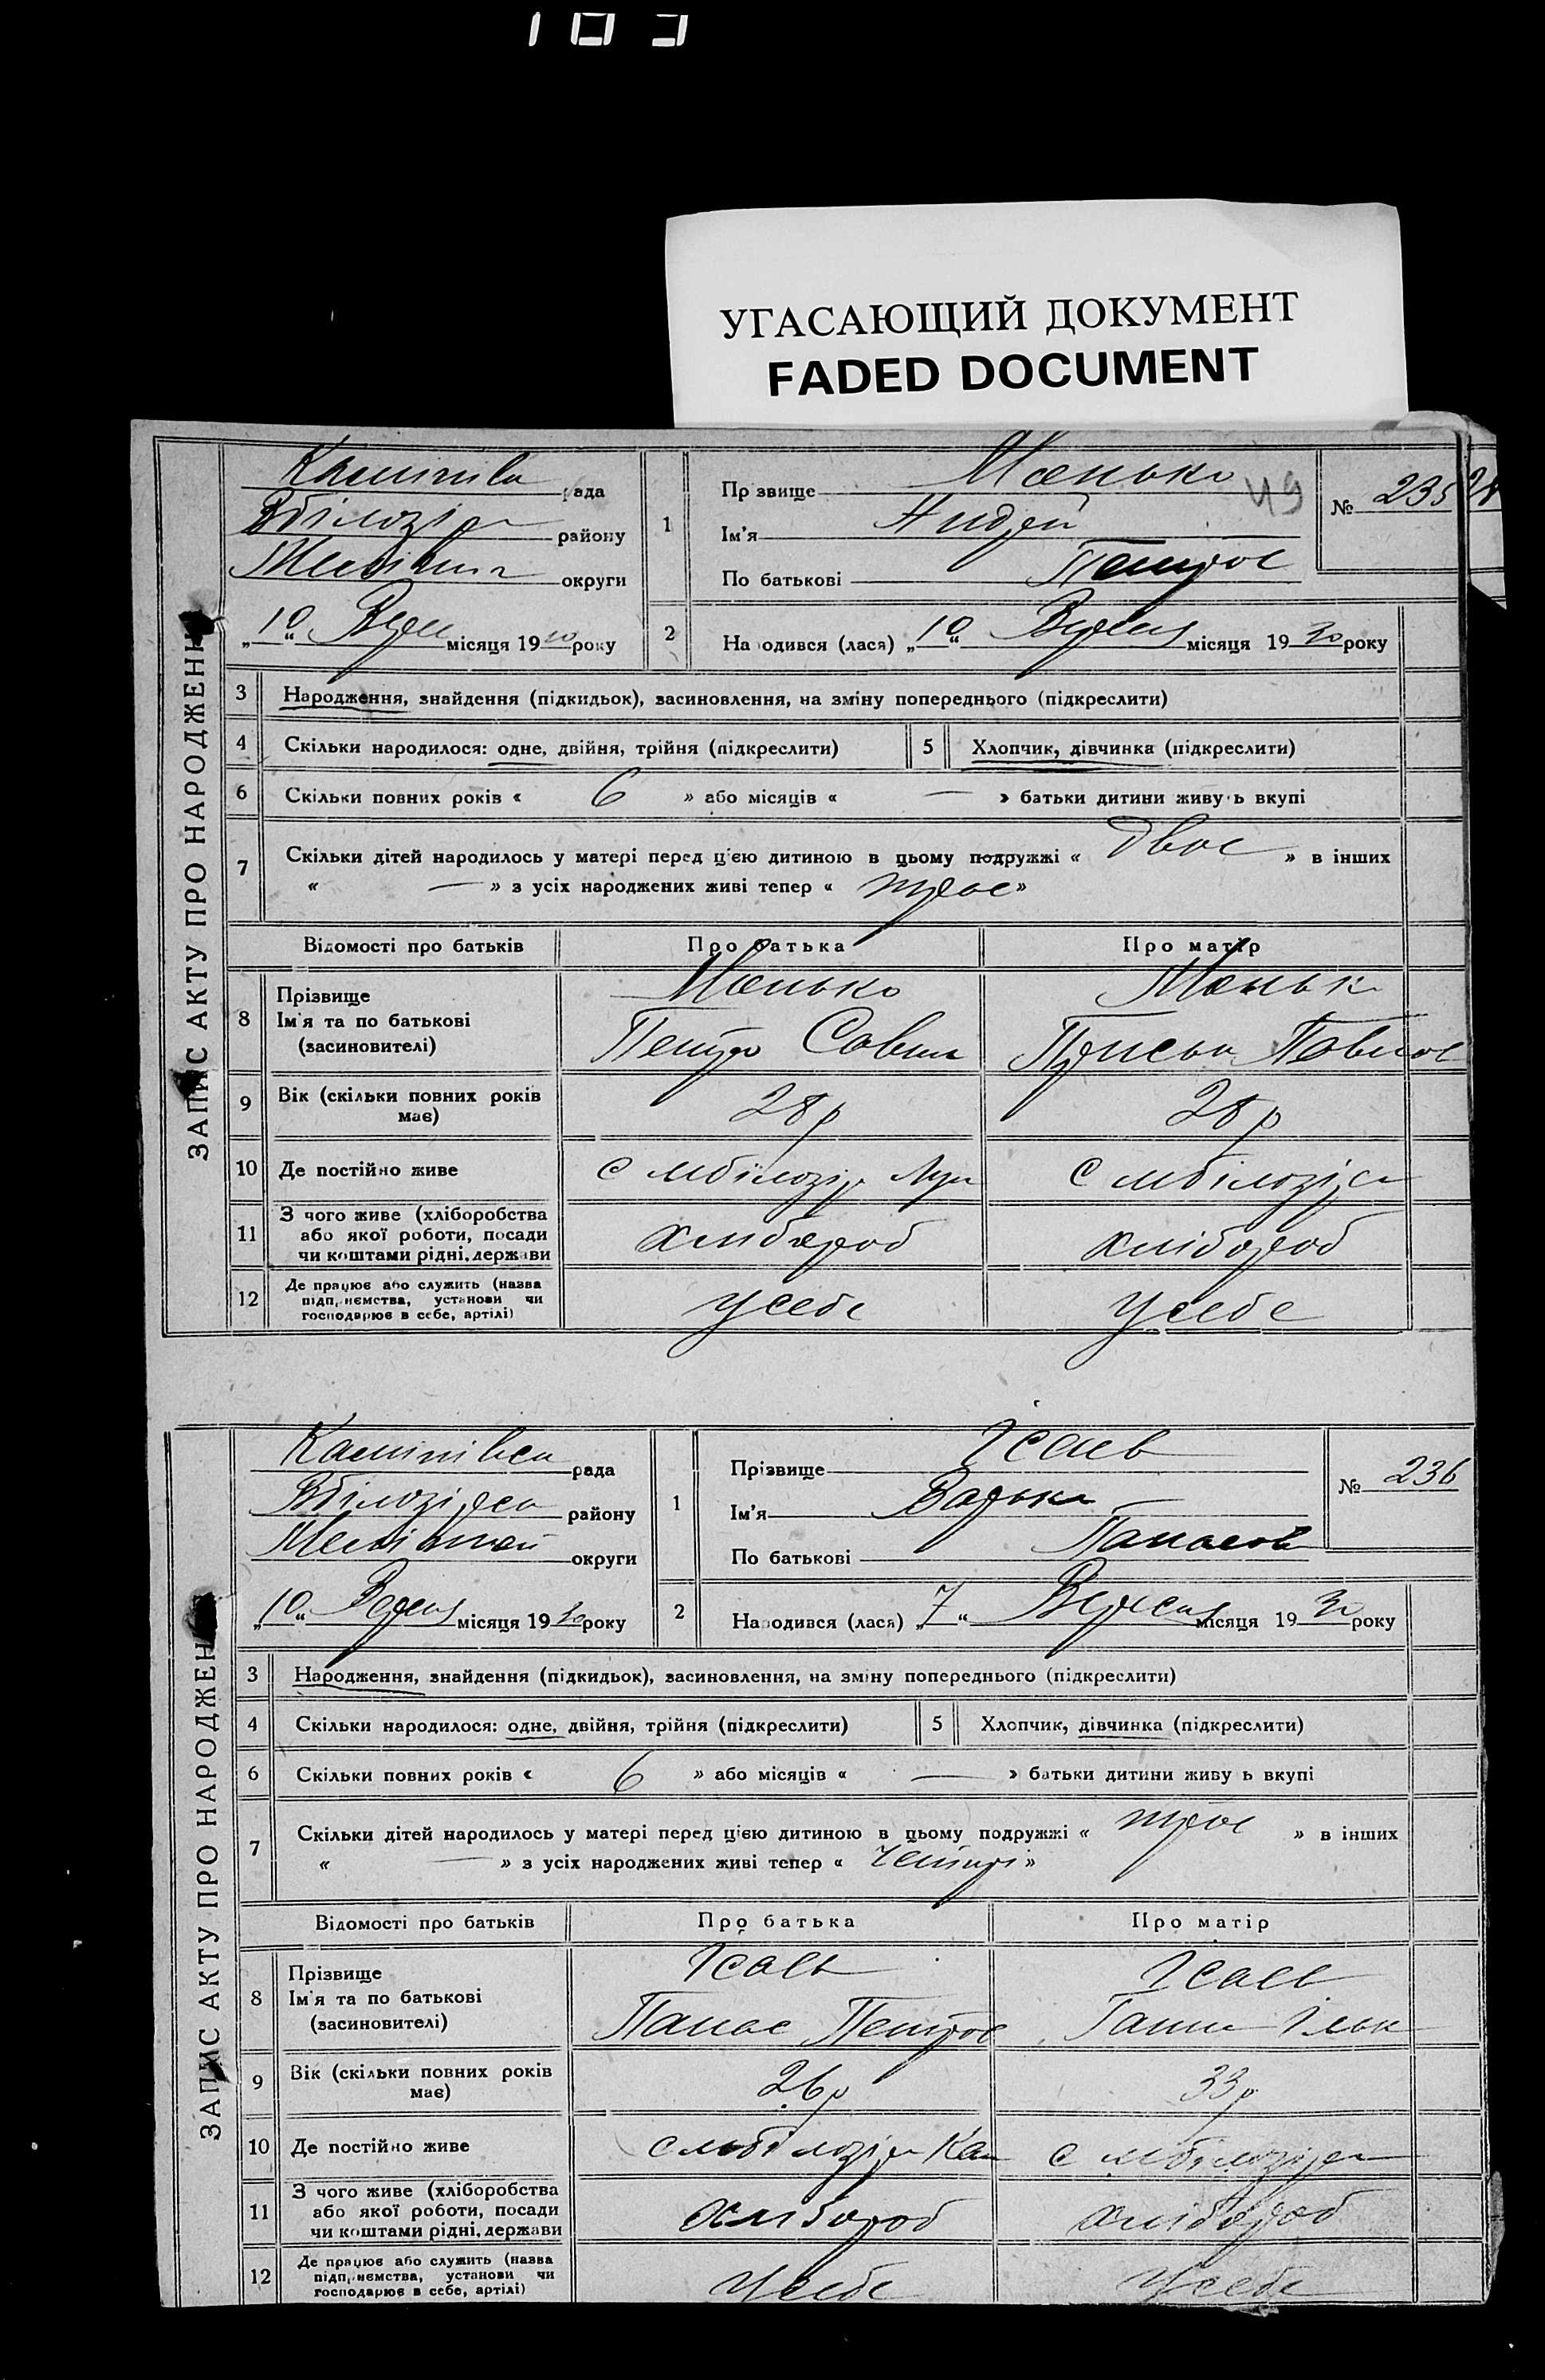 103
УГАСАЮЩИЙ ДОКУМЕНТ
FADED DOCUMENT
ЗАПИС АКТУ ПРО НАРОДЖЕНН
рада
району
округи
„10“ Верес місяця 19 30 року
1
Пр звище Манько
49
№ 235
Ім'я Андрій
По батькові Петров
2
На одився (лася) „10“ Верес місяця 19 30 року
3 Народження, знайдення (підкидьок), засиновлення, на зміну попереднього (підкреслити)
4 Скільки народилося: одне, двійня, трійня (підкреслити)
5 Хлопчик, дівчинка (підкреслити)
6 Скільки повних років « 6 » або місяців « — » батьки дитини живу ь вкупі
7 Скільки дітей народилось у матері перед цією дитиною в цьому подружжі « двое » в інших
« — » з усіх народжених живі тепер « трое »
Відомості про батьків Про батька Про матір
8 Прізвище Манько Маньк
Ім'я та по батькові Петро Савич Приська Павлов
(засиновителі)
9 Вік (скільки повних років має) 28 р 28 р
10 Де постійно живе с мбілозір с мбілозірка
11 З чого живе (хліборобства або якої роботи, посади чи коштами рідні, держави хлібороб хлібороб
12 Де працює або служить (назва підп. иємства, установи чи господарює в себе, артілі) у себе у себе
ЗАПИС АКТУ ПРО НАРОДЖЕН
Камінівка рада
Вбілозірка району
округи
„10“ Верес місяця 19 30 року
1
Прізвище Ісаев
№ 236
Ім'я Варька
По батькові Панасов
2
На одився (лася) „7“ Верес місяця 19 30 року
3 Народження, знайдення (підкидьок), засиновлення, на зміну попереднього (підкреслити)
4 Скільки народилося: одне, двійня, трійня (підкреслити)
5 Хлопчик, дівчинка (підкреслити)
6 Скільки повних років « 6 » або місяців « — » батьки дитини живу ь вкупі
7 Скільки дітей народилось у матері перед цією дитиною в цьому подружжі « трое » в інших
« — » з усіх народжених живі тепер « четирі »
Відомості про батьків Про батька Про матір
8 Прізвище Ісаев Ісаев
Ім'я та по батькові Панас Петров Ганна Ільк
(засиновителі)
9 Вік (скільки повних років має) 26 р 33 р
10 Де постійно живе с мбілозірка Кам с мбілозірка
11 З чого живе (хліборобства або якої роботи, посади чи коштами рідні, держави хлібороб хлібороб
12 Де працює або служить (назва підп. иємства, установи чи господарює в себе, артілі) у себе у себе